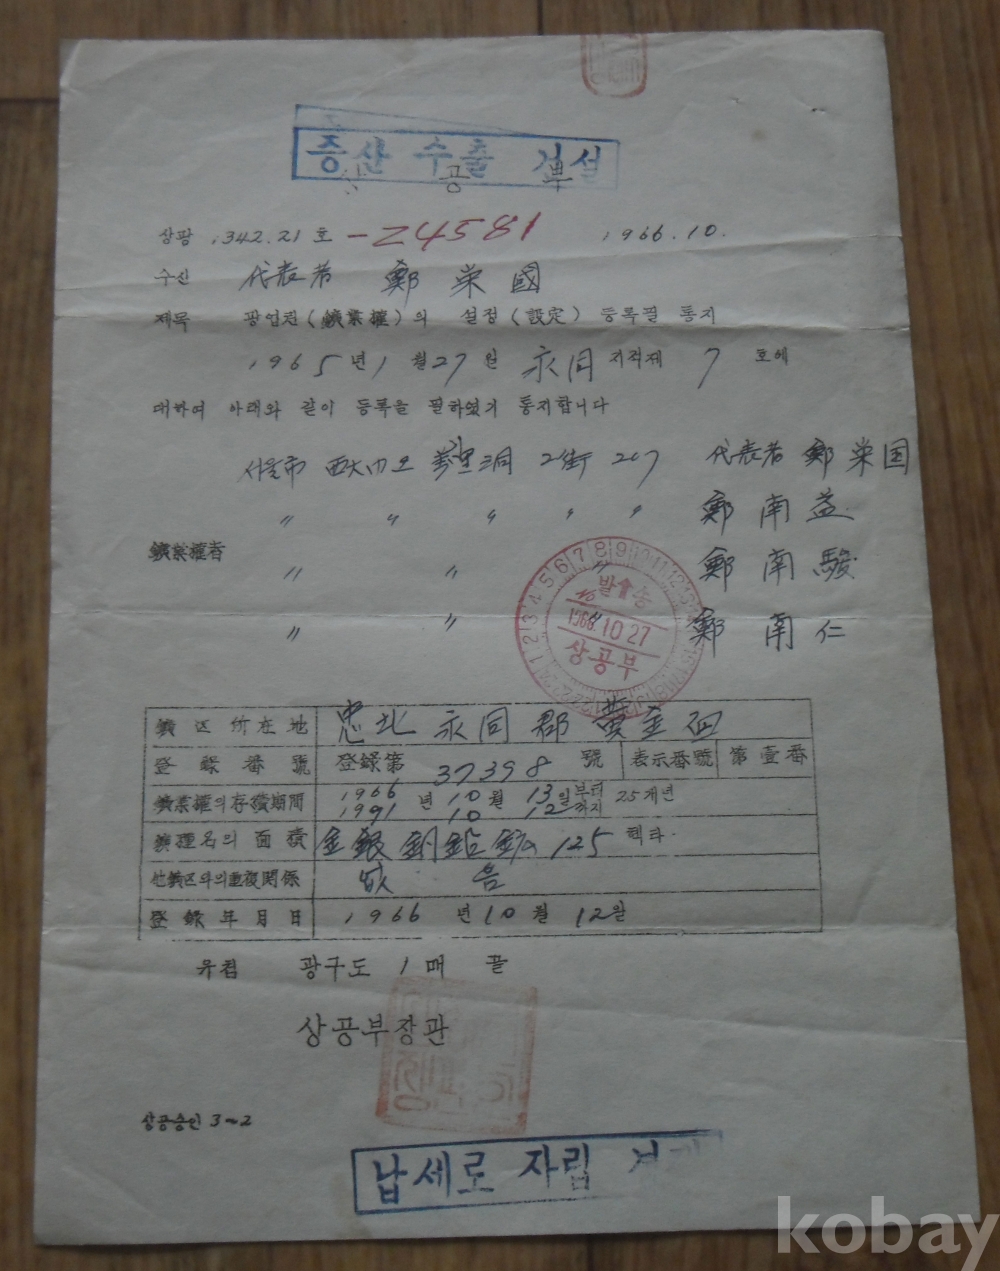 증산 수출 건설
상 공 부
상광 1342.21 호 -24581 1966.10.
수신 代表者 鄭榮國
제목 광업권(鑛業權)의 설정(設定) 등록필 통지
1965년 1월 27일 永同 지적제 7 호에
대하여 아래와 같이 등록을 필하였기 통지합니다
서울市 西大門区 2街 207 代表者 鄭榮国
〃 〃 〃 〃 〃 鄭南益
鑛業權者
〃 〃 〃 鄭南駿
〃 〃 〃 鄭南仁
발송
1966.10 27
상공부
鑛区所在地 忠北 永同郡 黄金面
登録番號 登録第 37398 號 表示番號 第壹番
鑛業權의存續期間 1966 1991 년 10 10 월 13 12 일 부터 까지 25개년
鑛種名의 面積 金銀銅鉛鉱 125 헥타
他鑛区와의重複關係 없음
登録年月日 1966 년 10 월 12일
유첨 광구도 1 매 끝
상공부장관
상공승인 3~2
납세로 자립
kobay